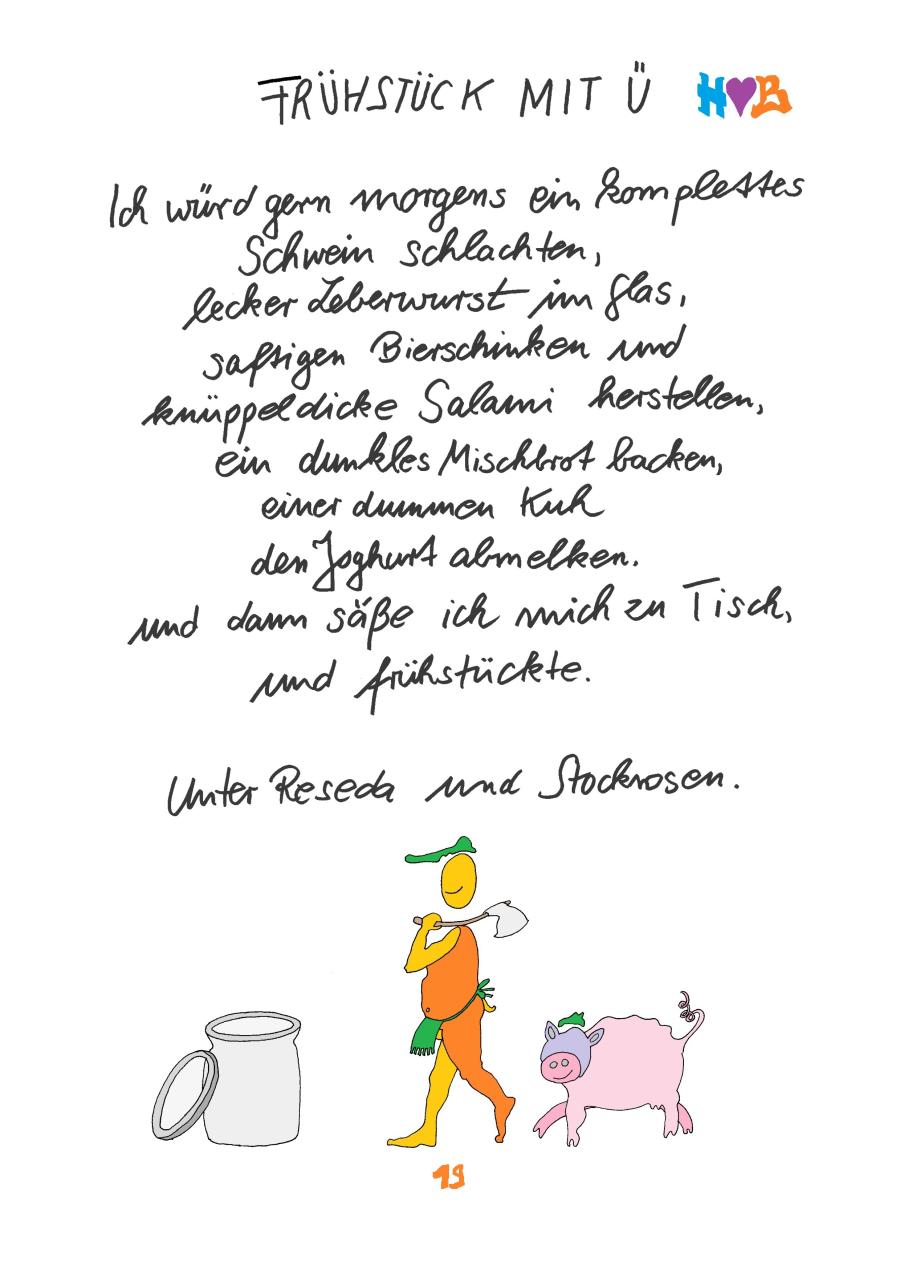 FRÜHSTÜCK MIT Ü H♥B
Ich würd gern morgens ein komplettes
Schwein schlachten,
lecker Leberwurst im Glas,
saftigen Bierschinken und
knüppeldicke Salami herstellen,
ein dunkles Mischbrot backen,
einer dummen Kuh
den Joghurt abmelken.
und dann säße ich mich zu Tisch,
und frühstückte.
Unter Reseda und Stockrosen.
19